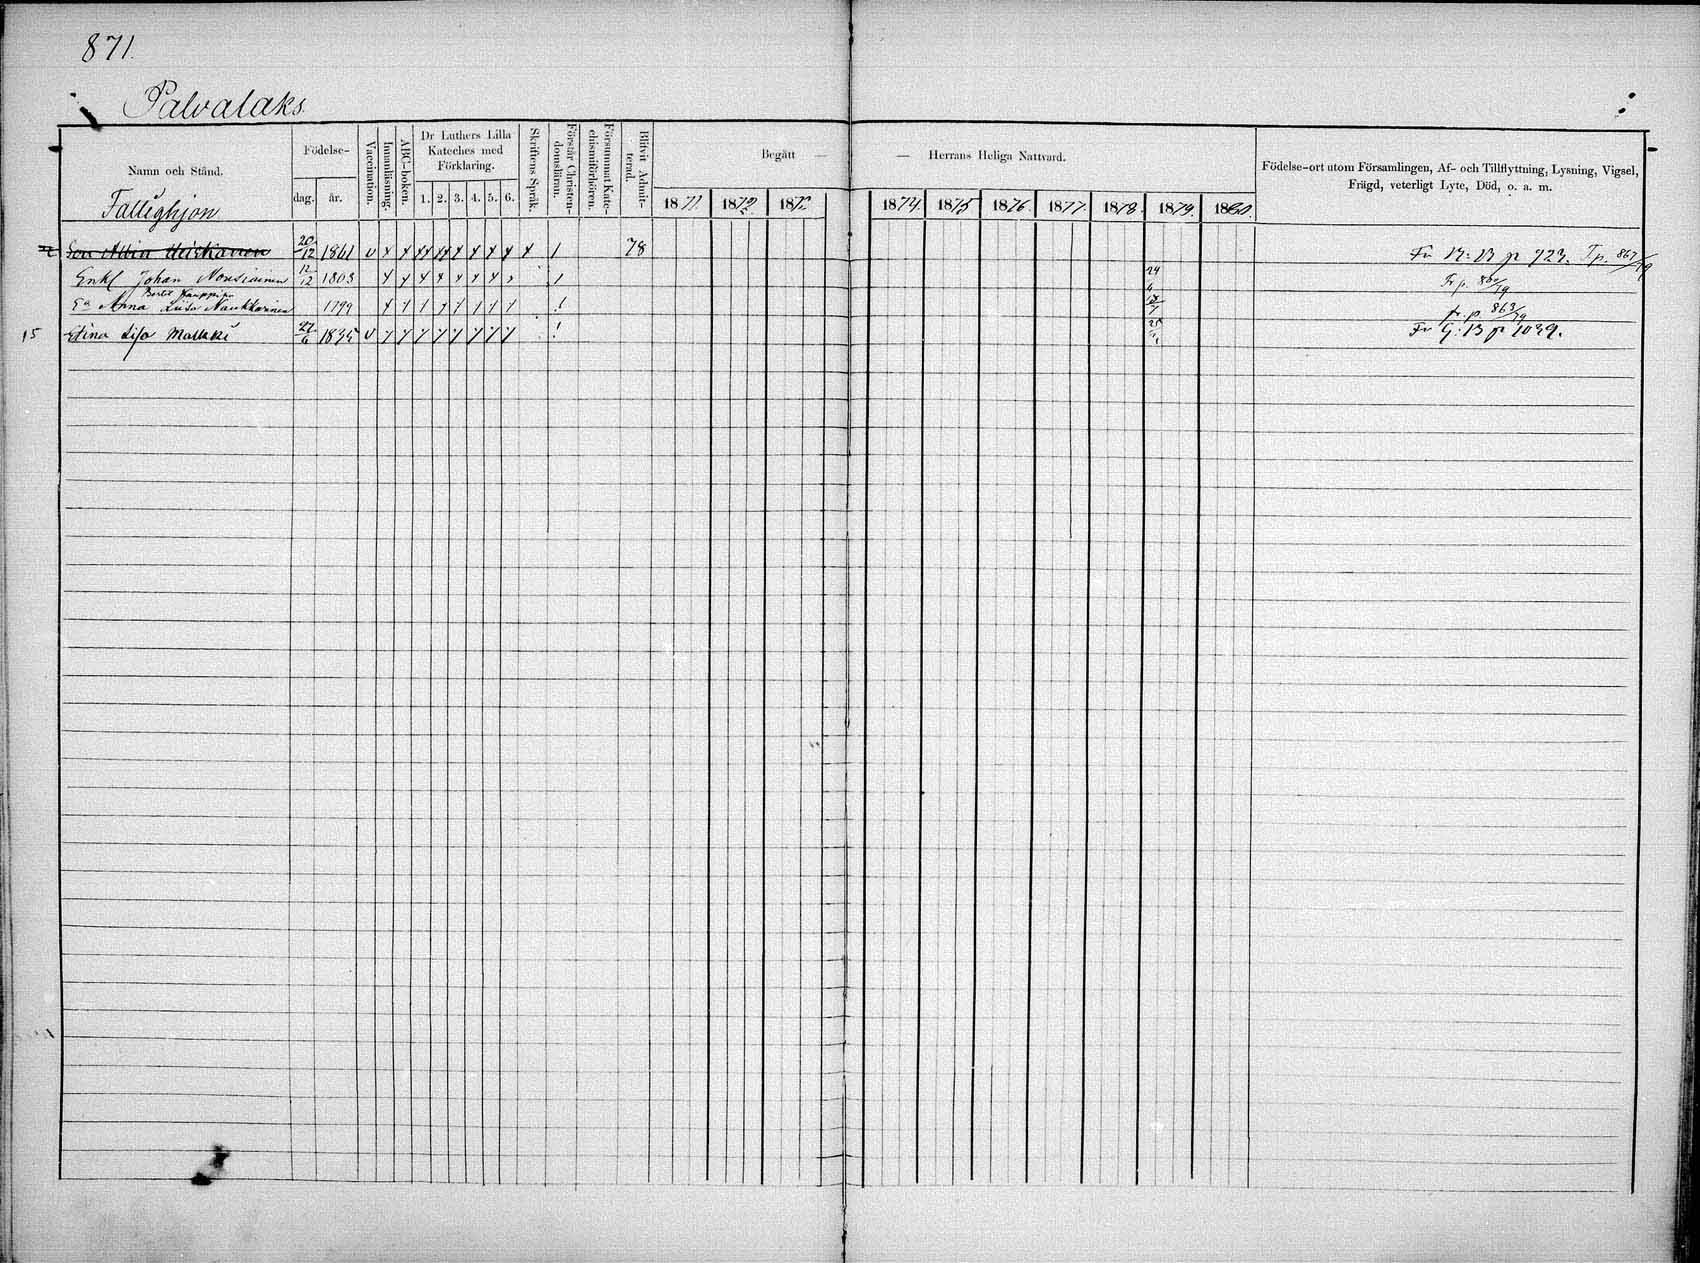 871.
Palvalaks
Namn och Stånd.
Födelse-
dag. år.
Vaccination.
Innanläsning.
ABC-boken.
Dr Luthers Lilla
Kateches med
Förklaring.
1. 2. 3. 4. 5. 6.
Skriftens Språk.
Förstår Christen-
domsläran.
Försummat Kate-
chismiförhören.
Blifvit Admit-
terad.
Begått — — Herrans Heliga Nattvard.
1871. 1872. 1873. 1874. 1875 1876 1877 1878. 1879. 1880.
Födelse-ort utom Församlingen, Af- och Tillflyttning, Lysning, Vigsel,
Frägd, veterligt Lyte, Död, o. a. m.
Fattighjon
Son Albin Heiskanen 20/12 1861 v x x x x x x x x x 1 78 Fr 17: B p 723. T p. 867/79
Enkl Johan Nousiainen 12/12 1803 1 24 Fr p. 860/79
Bertil Kauppinen
Ea Anna Lisa Naukkarinen 1799 1 fr. p. 863/79
15 Stina Lisa Matlaki 27/6 1835 v 1 Fr G: B p 1039.